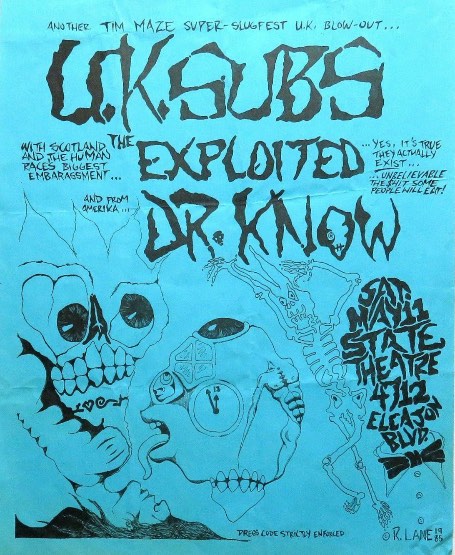 ANOTHER TIM MAZE SUPER-SLUGFEST U.K. BLOW-OUT...
U.K. SUBS
WITH SCOTLAND
AND THE HUMAN
RACES BIGGEST
EMBARASSMENT...
THE
EXPLOITED
...YES, IT'S TRUE
THEY ACTUALLY
EXIST...
...UNBELIEVABLE
THE $HIT SOME
PEOPLE WILL EAT!
AND FROM
AMERIKA...
DR. KNOW
SAT.
MAY 11
STATE
THEATRE
4712
ELCAJON
BLVD.
13
DRESS CODE STRICTLY ENFORCED
© R. LANE 1985